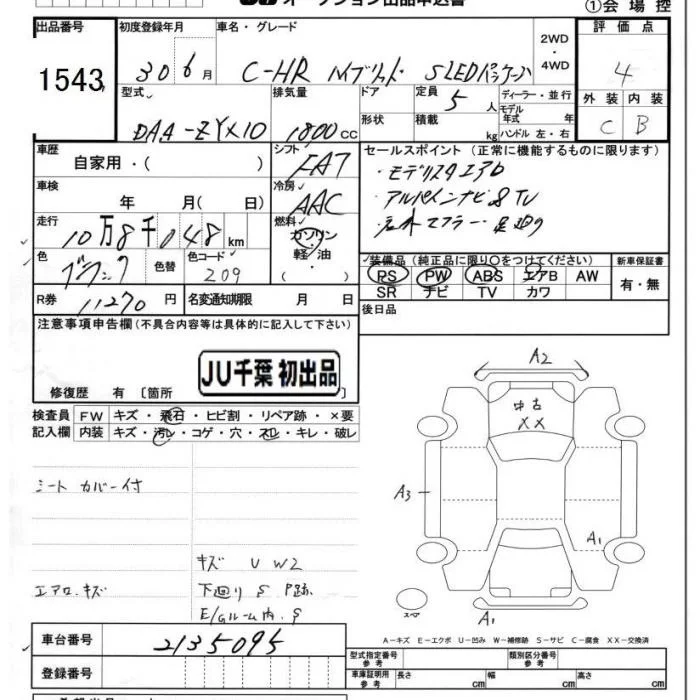 JU オークション出品申込書
①会場控
出品番号 初度登録年月 車名・グレード 2WD・4WD 評価点
1543 30 6月 C-HR ハイブリット S LEDパッケージ 4
型式 排気量 ドア 定員 5人 ディーラー・並行 外装 内装
DAA-ZYX10 1800cc 形状 積載 kg モデル年式 年 ハンドル 左・右 C B
車歴 自家用・( ) シフト FAT セールスポイント (正常に機能するものに限ります)
車検 年 月( 日) 冷房 AAC ・モデリスタエアロ
・アルパインナビ&TV
走行 10万8千048km 燃料 ガソリン 軽油 ・( )
マフラー
色 ブラック 色替 色コード 209 装備品(純正品に限り○をつけてください) 新車保証書
PS PW ABS エアB AW 有・無
SR ナビ TV カワ
R券 11270円 名変通知期限 月 日 後日品
注意事項申告欄(不具合内容等は具体的に記入して下さい)
JU千葉 初出品
修復歴 有 〔箇所
検査員記入欄 FW キズ・飛石・ヒビ割・リペア跡・×要
内装 キズ・汚レ・コゲ・穴・スレ・キレ・破レ
シートカバー付
キズ U W2
エアロ.キズ 下廻り S P跡
E/Gルーム内.S
A2
中古
XX
A3
A1
スペア
A1
A-キズ E-エクボ U-凹み W-補修跡 S-サビ C-腐食 XX-交換済
車台番号 2135095
登録番号
型式指定番号 参考 類別区分番号 参考
車庫証明用 参考 長さ cm 幅 cm 高さ cm